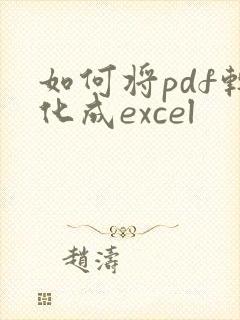 如何将pdf转
化成excel
趙濤